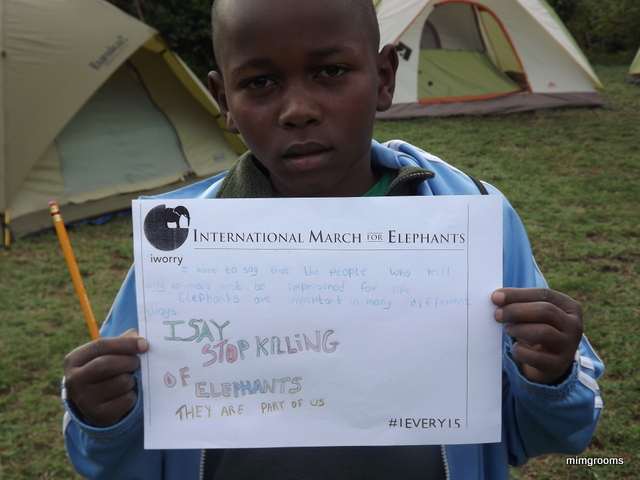 Eureka!
INTERNATIONAL MARCH FOR ELEPHANTS
iworry
I want to say that the people who kill
wild animals must be imprisoned for life
Elephants are important in many different
ways.
I SAY
STOP KILLING
OF
ELEPHANTS
THEY ARE PART OF US
#1EVERY15
mimgrooms